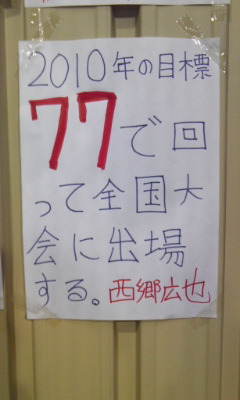 2010年の目標
77で回
って全国大
会に出場
する。西郷広也